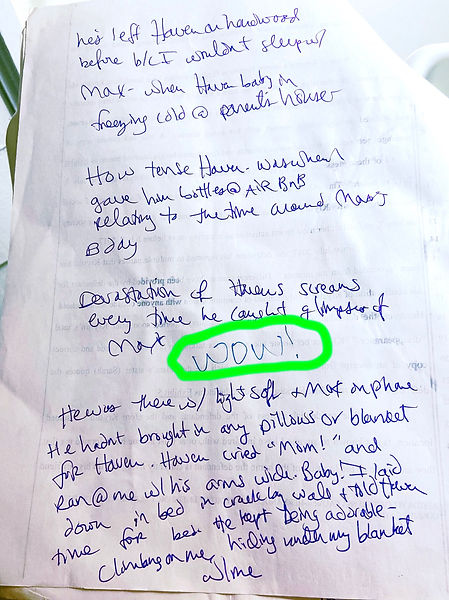 he's left Haven on hardwood
before b/c I wouldn't sleep w/
Max - when Haven baby in
freezing cold @ parents house
How tense Haven was when I
gave him bottles @ AIR BnB
relating to the time around Max's
Bday
Devastation of Haven's screams
every time he caught glimpse of
Max WOW!
He was there w/ light soft & Max on phone
He hadnt brought in any pillows or blanket
for Haven. Haven cried "Mom!" and
Ran @ me w/ his arms wide. Baby! I laid
down in bed in by wall & told Haven
time for bed. He kept being adorable -
Climbing on me, hiding under my blanket
w/ me
een provide
with anyone
copy